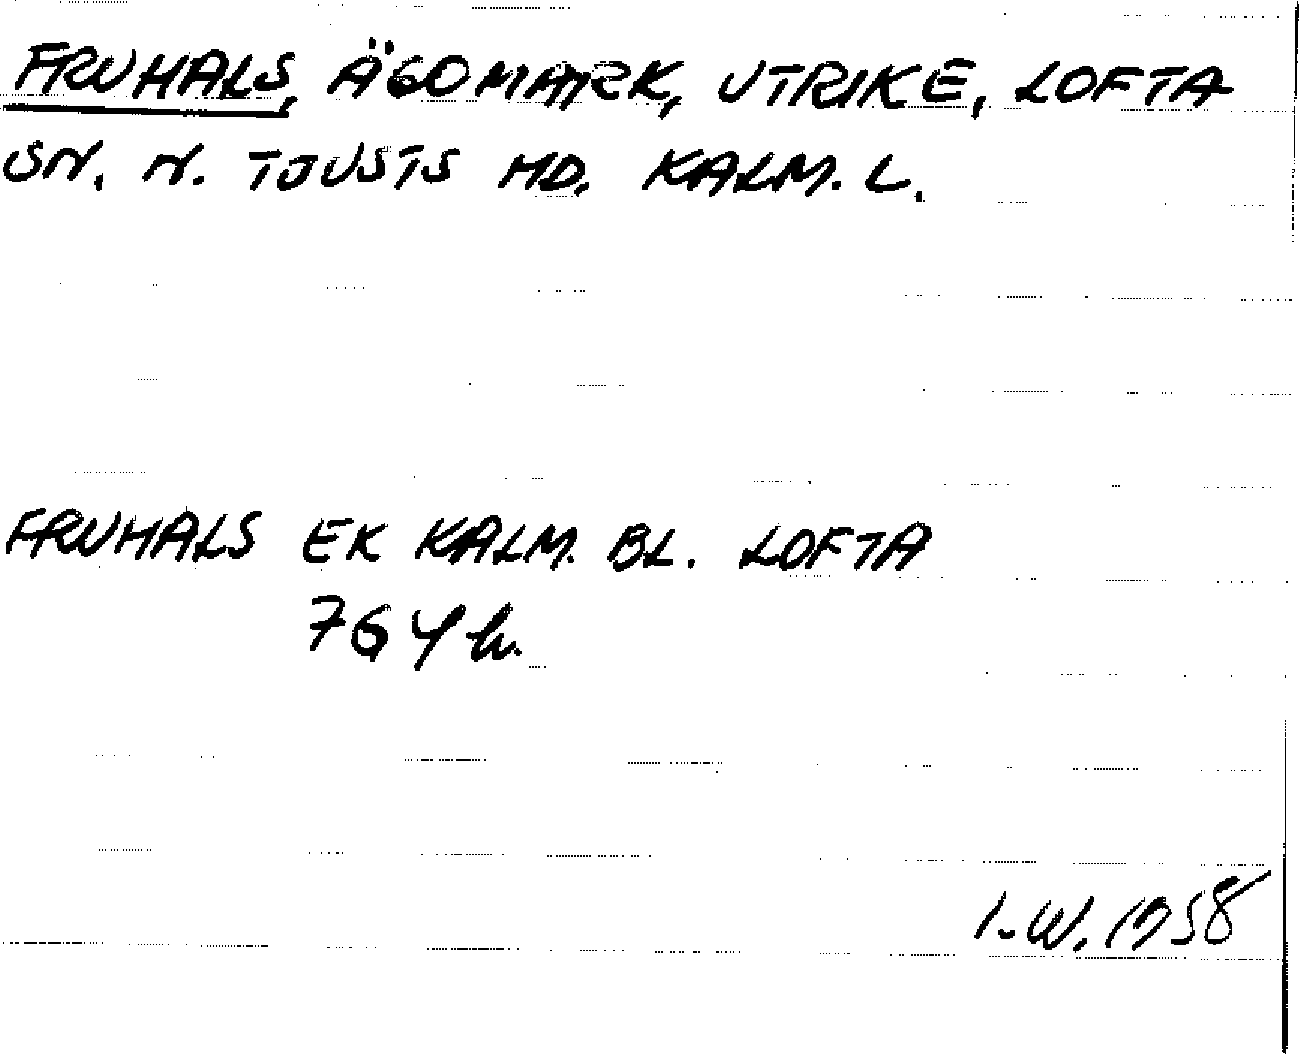 FRUHALS, ÄGOMARK, UTRIKE, LOFTA
SN. N. TJUSTS HD. KALM. L.
FRUHALS EK KALM. BL. LOFTA
764
I.W. 1958